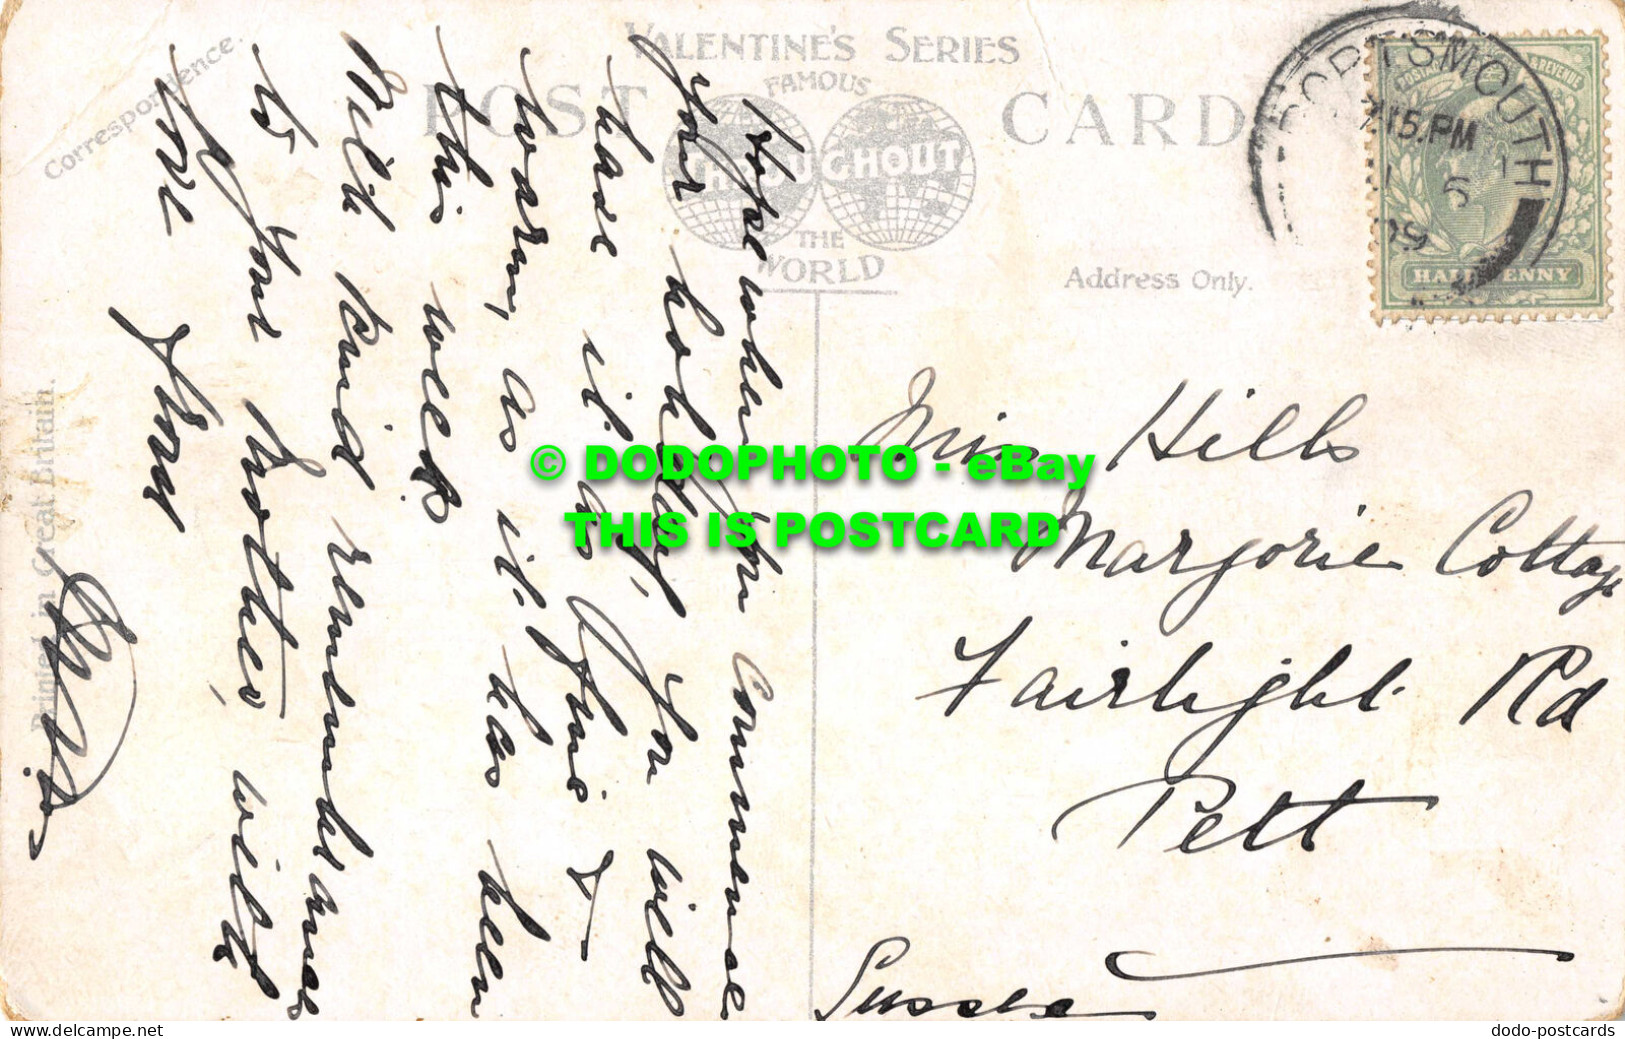 VALENTINE'S SERIES
FAMOUS
POST CARD
THROUGHOUT
THE
WORLD
Correspondence.
Address Only.
Printed in Great Britain.
PORTSMOUTH
7.15.PM
POSTAGE & REVENUE
HALFPENNY
Hope when you commence
your holiday you will
have it as fine &
warm, as it has been
this week
With kind remembrances
to your brother, with
love from
Miss Hills
Marjorie Cottage
Fairlight Rd
Pett
Sussex
© DODOPHOTO - eBay
THIS IS POSTCARD
dodo-postcards